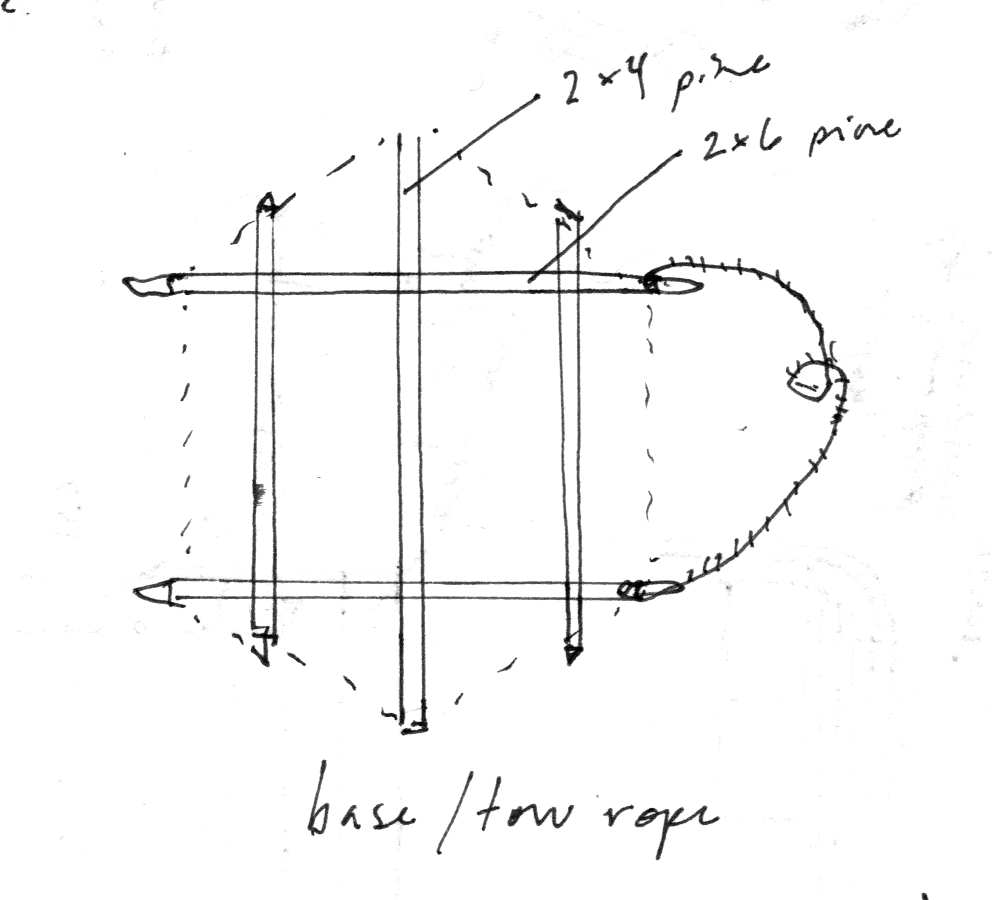 2x4 pine
2x6 pine
base/tow rope